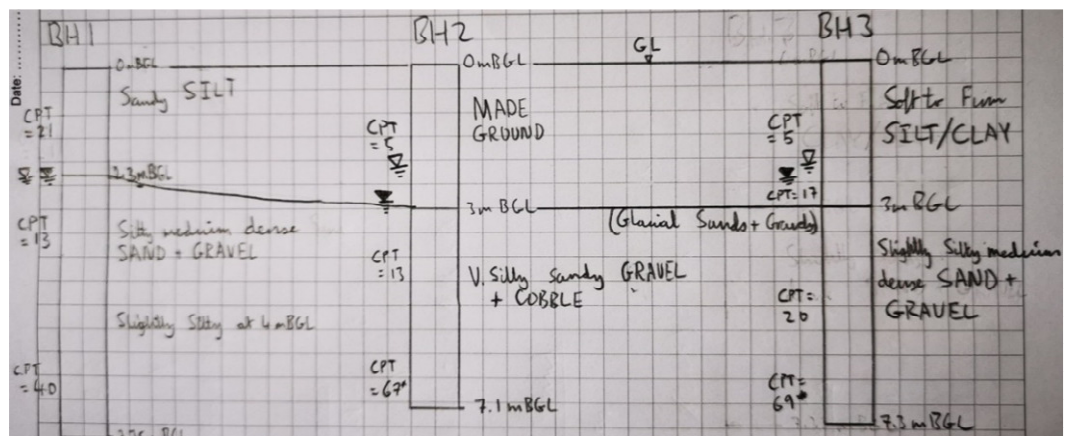 Date:
BH1
0mBGL
Sandy SILT
CPT
= 21
2.3mBGL
CPT
= 13
Silty medium dense
SAND + GRAVEL
Slightly Silty at 4mBGL
CPT
= 40
BH2
0mBGL
MADE
GROUND
CPT
= 5
3m BGL
CPT
= 13
V. Silty Sandy GRAVEL
+ COBBLE
CPT
= 67*
7.1mBGL
GL
(Glacial Sands + Gravels)
BH3
0mBGL
Soft to Firm
SILT/CLAY
CPT
= 5
CPT= 17
3m BGL
Slightly Silty medium
dense SAND +
GRAVEL
CPT=
20
CPT=
69*
7.3mBGL